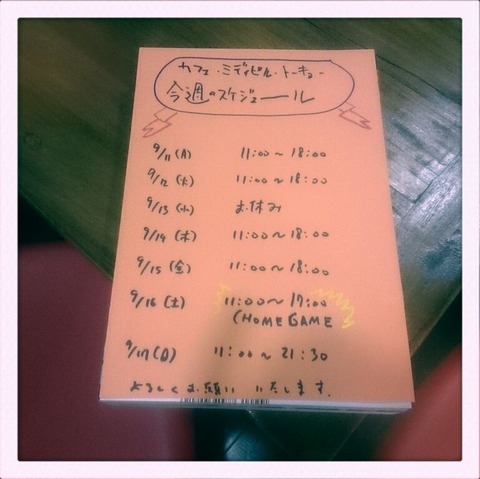 カフェ・ミディピル・トーキョー
今週のスケジュール
9/11(月) 11:00~18:00
9/12(火) 11:00~18:00
9/13(水) お休み
9/14(木) 11:00~18:00
9/15(金) 11:00~18:00
9/16(土) 11:00~17:00
(HOME GAME
9/17(日) 11:00~21:30
よろしくお願いいたします。